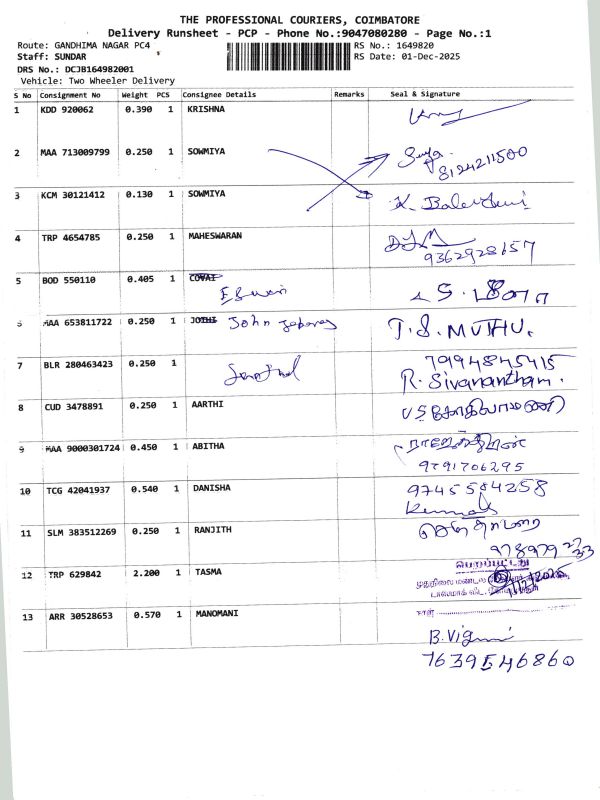 THE PROFESSIONAL COURIERS, COIMBATORE
Delivery Runsheet - PCP - Phone No.:9047080280 - Page No.:1
Route: GANDHIMA NAGAR PC4 RS No.: 1649820
Staff: SUNDAR RS Date: 01-Dec-2025
DRS No.: DCJB164982001
Vehicle: Two Wheeler Delivery
S No Consignment No Weight PCS Consignee Details Remarks Seal & Signature
1 KDD 920062 0.390 1 KRISHNA
2 MAA 713009799 0.250 1 SOWMIYA
8124211500
3 KCM 30121412 0.130 1 SOWMIYA K.
4 TRP 4654785 0.250 1 MAHESWARAN
9362928657
5 BOD 550110 0.405 1 COVAI
6 MAA 653811722 0.250 1 JOTHI John T.S. MUTHU.
7 BLR 280463423 0.250 1 7994845415
R. Sivanantham.
8 CUD 3478891 0.250 1 AARTHI
9 MAA 9000301724 0.450 1 ABITHA
9791706295
10 TCG 42041937 0.540 1 DANISHA 9745584258
11 SLM 383512269 0.250 1 RANJITH
12 TRP 629842 2.200 1 TASMA பெறப்பட்டது
13 ARR 30528653 0.570 1 MANOMANI நாள்
B.
7639546860